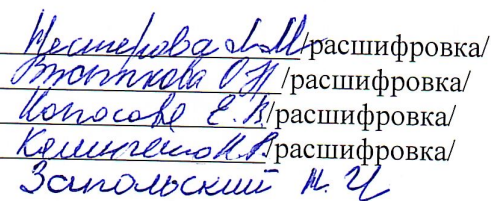 Нестерова Л.М /расшифровка/
О Н /расшифровка/
Копосова Е.В /расшифровка/
Н.В /расшифровка/
Запольский Н. И